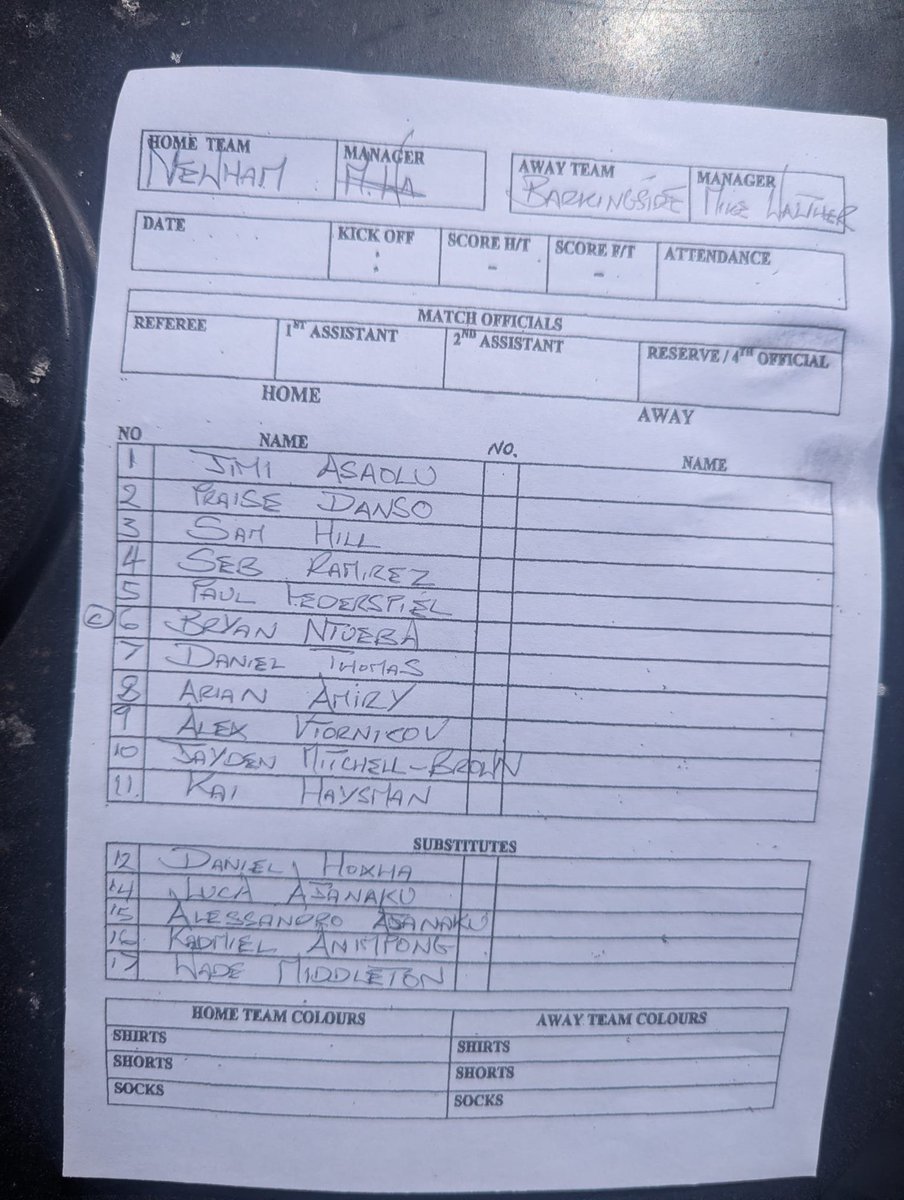 HOME TEAM MANAGER AWAY TEAM MANAGER
NEWHAM BARKINGSIDE MIKE WALTHER
DATE KICK OFF SCORE H/T SCORE F/T ATTENDANCE
: - -
MATCH OFFICIALS
REFEREE 1ST ASSISTANT 2ND ASSISTANT RESERVE / 4TH OFFICIAL
HOME AWAY
NO NAME NO. NAME
1 JIMI ASAOLU
2 PRAISE DANSO
3 SAM HILL
4 SEB RAMIREZ
5 PAUL FEDERSPIEL
C 6 BRYAN NTUEBA
7 DANIEL THOMAS
8 ARIAN AMIRY
9 ALEX VTORNIKOV
10 JAYDEN MITCHELL-BROWN
11. KAI HAYSMAN
SUBSTITUTES
12 DANIEL HOXHA
14 LUCA ADANAKU
15 ALESSANDRO ADANAKU
16 KADMIEL ANIMPONG
17 WADE MIDDLETON
HOME TEAM COLOURS AWAY TEAM COLOURS
SHIRTS SHIRTS
SHORTS SHORTS
SOCKS SOCKS